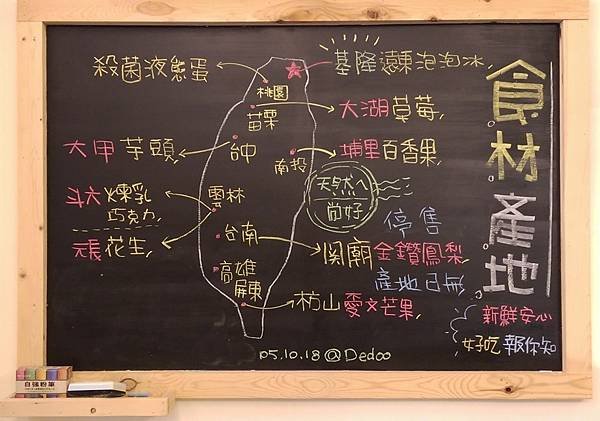 食材產地
殺菌液態蛋
基隆遠東泡泡冰
桃園
苗栗
大湖草莓
大甲芋頭
台中
南投
埔里百香果
天然ㄟ
尚好
停售
斗六煉乳
巧克力
雲林
元長花生
台南
関廟金鑽鳳梨
產地已無
高雄
屏東
枋山愛文芒果
新鮮安心
好吃報你知
05.10.18@Dedoo
自強粉筆